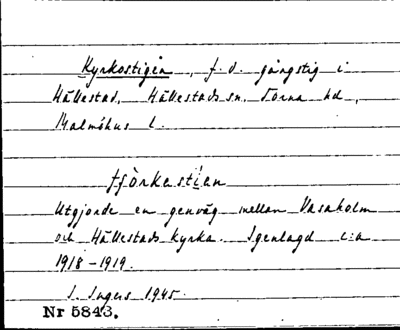 Kyrkostigen, f.d. gångstig i
Hällestad, Hällestads sn, Torna hd,
Malmöhus l.
tjörkestien
Utgjorde en genväg mellan Vasaholm
och Hällestads kyrka. Igenlagd c:a
1918-1919.
I. Ingers 1945.
Nr 5843.